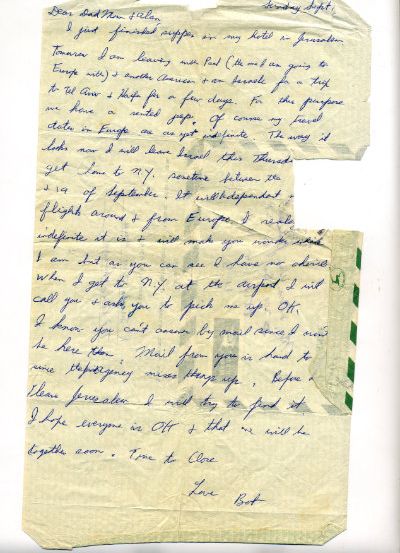 Sunday Sept 1
Dear Dad Mom & Alan,
I just finished supper in my hotel in Jerusalem
Tomorow I am leaving with Paul (the one I am going to
Europe with) & another American & an Israeli for a trip
to Tel Aviv & Haifa for a few days. For this purpose
we have a rented jeep. Of course my travel
dates in Europe are as yet indefinite. The way it
looks now I will leave Israel this Thursda
get home to N.Y. sometime between the
& 19 of September. It will independent
flights around & from Europe. I realize
indefinite it is & will make you wonder where
I am but as you can see I have no choice
When I get to N.Y. at the airport I will
call you & ask you to pick me up, OK.
I know you can't answer by mail since I won't
be here then. Mail from you is hard to
since the agency mixes things up. Before
I leave Jerusalem I will try to find it
I hope everyone is OK & that we will be
together soon. Time to Close
Love
Bob